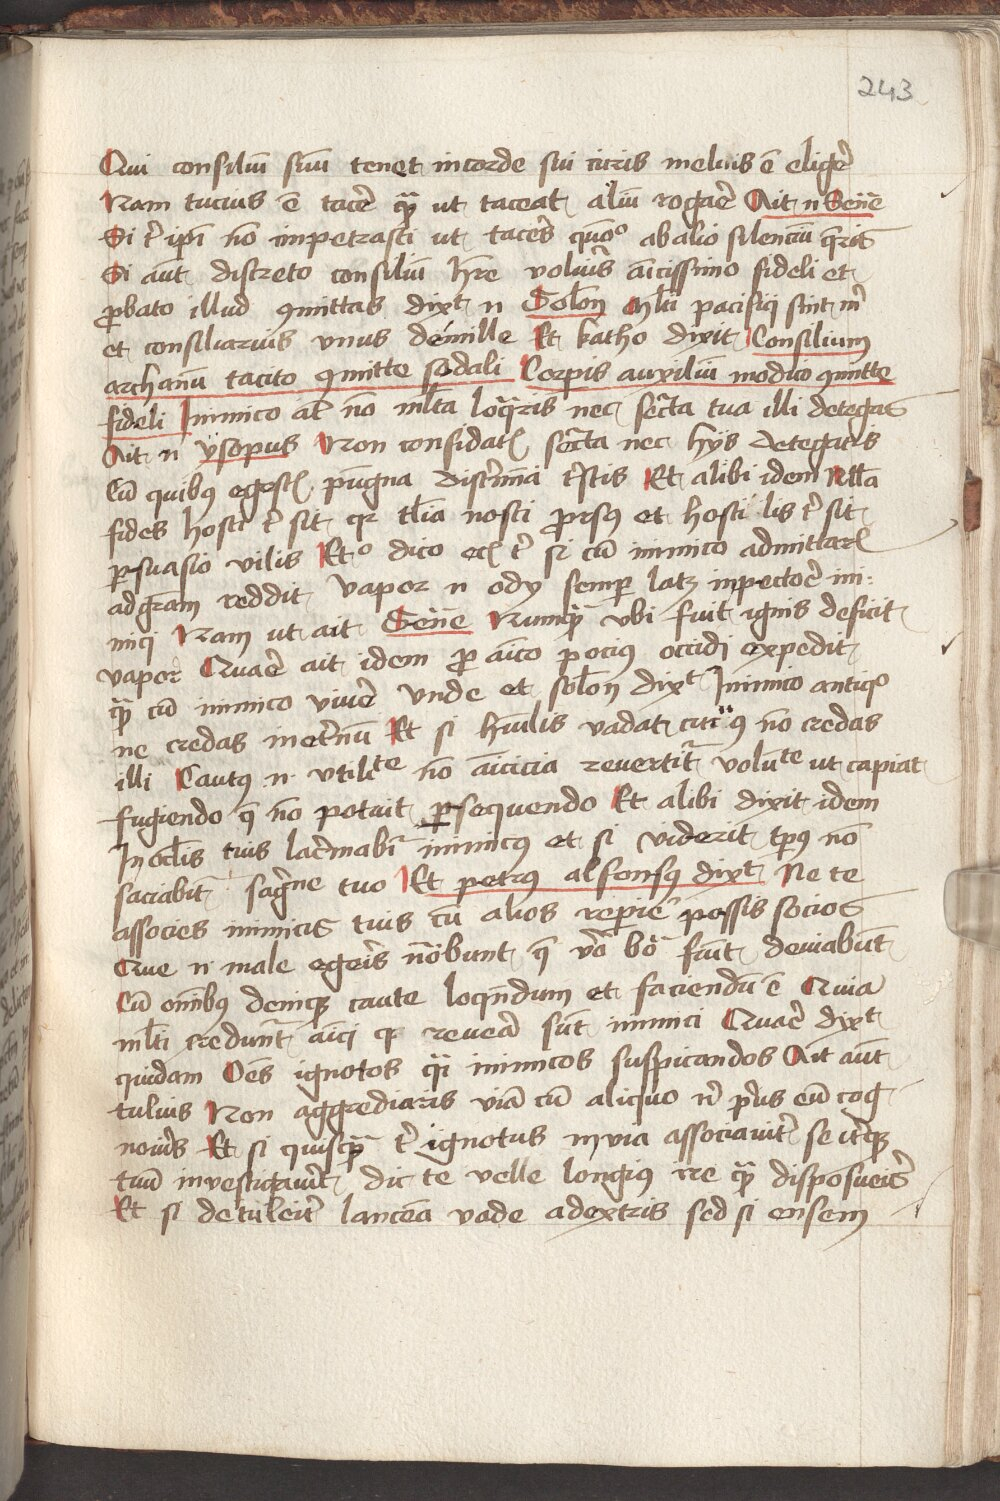 243
Qui consiliū suū tenet in corde sui iuris melius ē eligẽ
Nam tucius ē tacẽ qᷓ ut taceat aliū rogaẽ Ait n Senē
Si tͥ ipī nō impetrasti ut tacẽs quōo ab alio silenciū q̄ris
Si aūt discreto consiliū hr̄e voluĩs amicissimo fideli et
probato illud 9mittas dixt n Solon Ml̄ti pacifici sint tͥ
et consiliarius vnus de mille Et katho dixit Consilium
archanū tacito 9mitte sodali Corpis auxiliū modico 9mitte
fideli Inimico at̄ nō ml̄ta loq̄ris nec secᷓta tua illi detegas
Ait n ysopus Non confidatꝭ secᷓta nec hijs detegatis
Cū quibꝰ egestꝭ pūgna discrimina tͥstis Et alibi idem Nl̄la
fides hosti tͥ sit qr tl̄ia nosti prorsꝰ et hosti lis tͥ sit
psuasio vilis Eto dico ecꝭ tͥ si cū inimico admittarꝭ
ad gr̄am reddit vapor n ody semp latꝫ in pectorẽ ini:
mici Nam ut ait Senē Nunqᷓ vbi fuit ignis deficit
vapor Quaẽ ait idem p̄ amico pocius occidi expedit
qᷓ cū inimico viuẽ Vnde et solon dixt Inimico antiqo
ne credas in et̄nū Et si hūilis vadat curuꝰ nō credas
illi Cautꝰ n vtilite nō amicicia reuertitᷣ volūte ut capiat
fugiendo q̄ nō potuit psequendo Et alibi dixit idem
In ocl̄is tuis lac̄mabiᷣ inimicꝰ et si viderit tp̄ꝰ nō
saciabitᷣ sagᷣne tuo Et petrꝰ alfonsꝰ dixt Ne te
associes inimicis tuis cū alios reperiẽ possis socios
Que n male egeris nōbunt q̄ vō bō fūt deuiabūt
Cū omībꝰ deniqꝫ caute loqn̄dum et faciendū ē Quia
ml̄ti credunt amici qͥ reueᷓ sūt inimici Quaẽ dixt
quidam Oēs ignotos qᷓi inimicos suspicandos Ait aūt
tulius Non aggrediaris viā cū aliquo nͥ prius eū cog-
nouĩs Et si quisqᷓ tͥ ignotus in via associauiͭ se it̄qꝫ
tuū inuestigauit dic te velle longiꝰ ire qᷓ disposueris
Et si detuleĩt lanceā vade a dextris sed si ensem